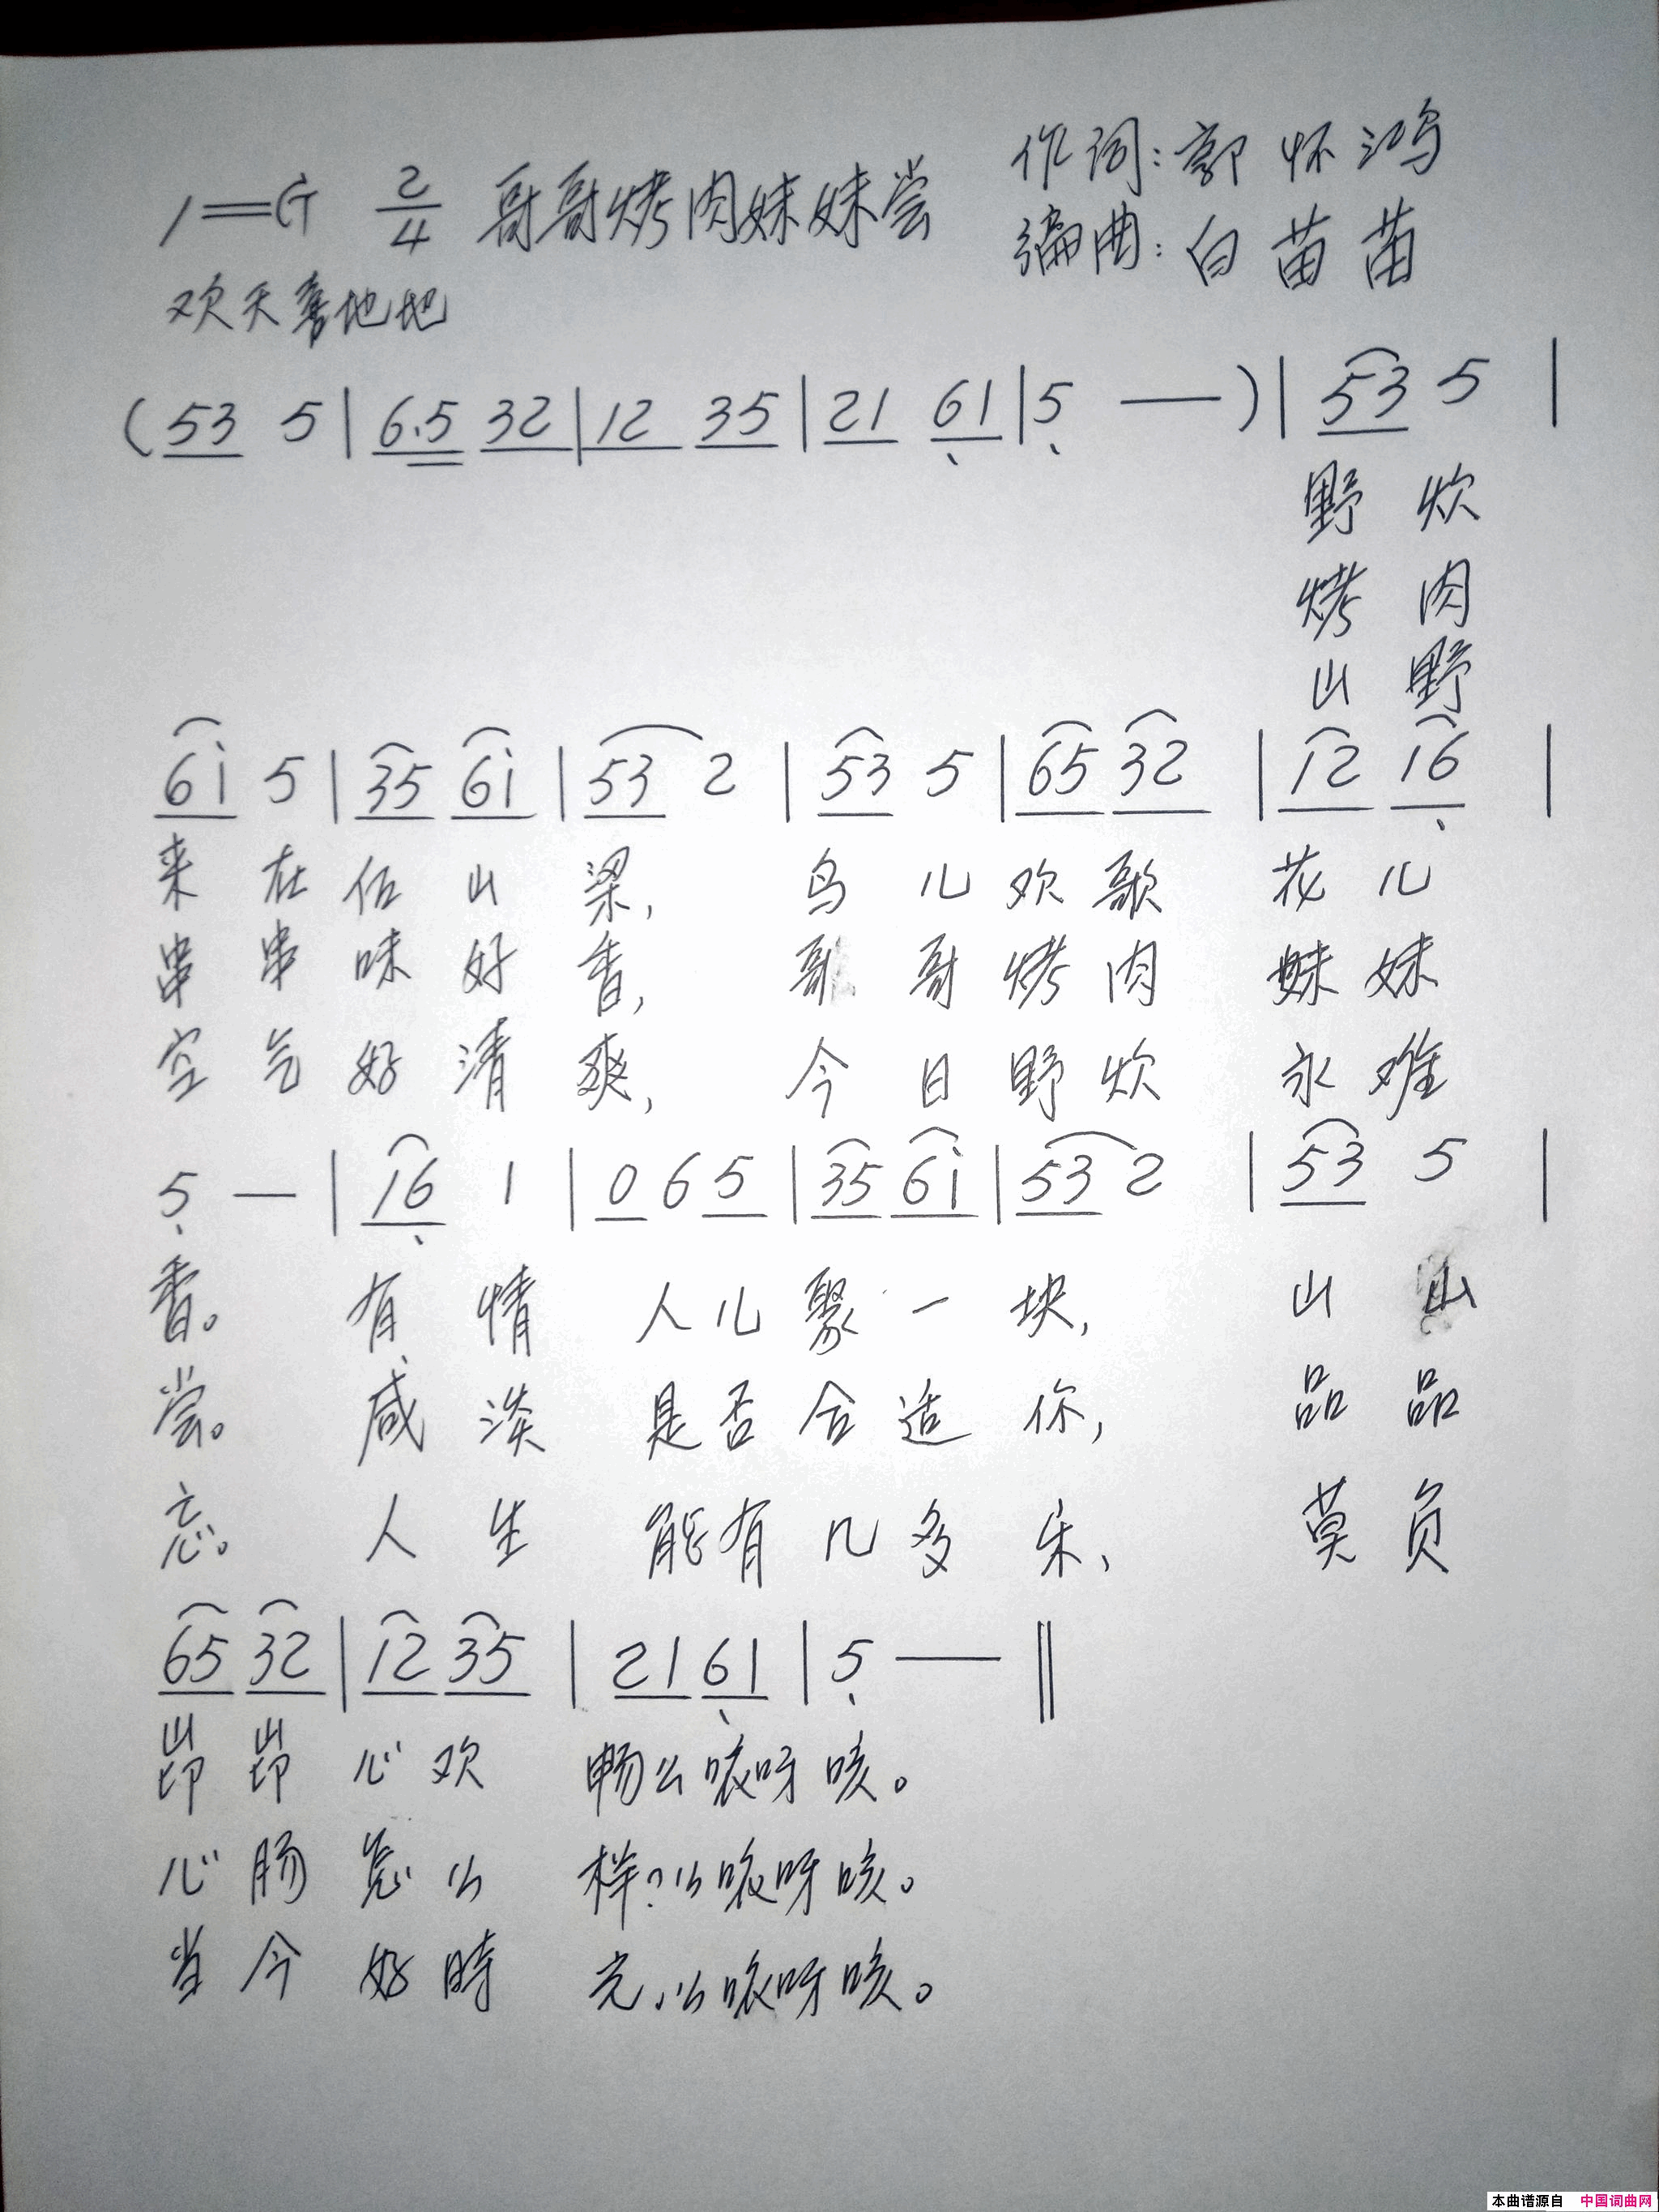 作词:郭怀鸿
1=G 2/4 哥哥烤肉妹妹尝
编曲:白苗苗
欢天喜地地
(53 5|6.5 32|12 35|21 61|5 —)|53 5|
野炊
烤肉
山野
61 5|35 61|53 2|53 5|65 32|12 16|
来在伍山梁,鸟儿欢歌花儿
串串味好香,哥哥烤肉妹妹
空气好清爽,今日野炊永难
5 —|16 1|0 6 5|35 61|53 2|53 5|
香。有情人儿聚一块,山山
尝。咸淡是否合适你,品品
忘。人生能有几多乐,莫负
65 32|12 35|21 61|5 —‖
峁峁心欢畅么哎呀咳。
心肠怎么样?么哎呀咳。
当今好時光,么哎呀咳。
本曲谱源自 中国词曲网